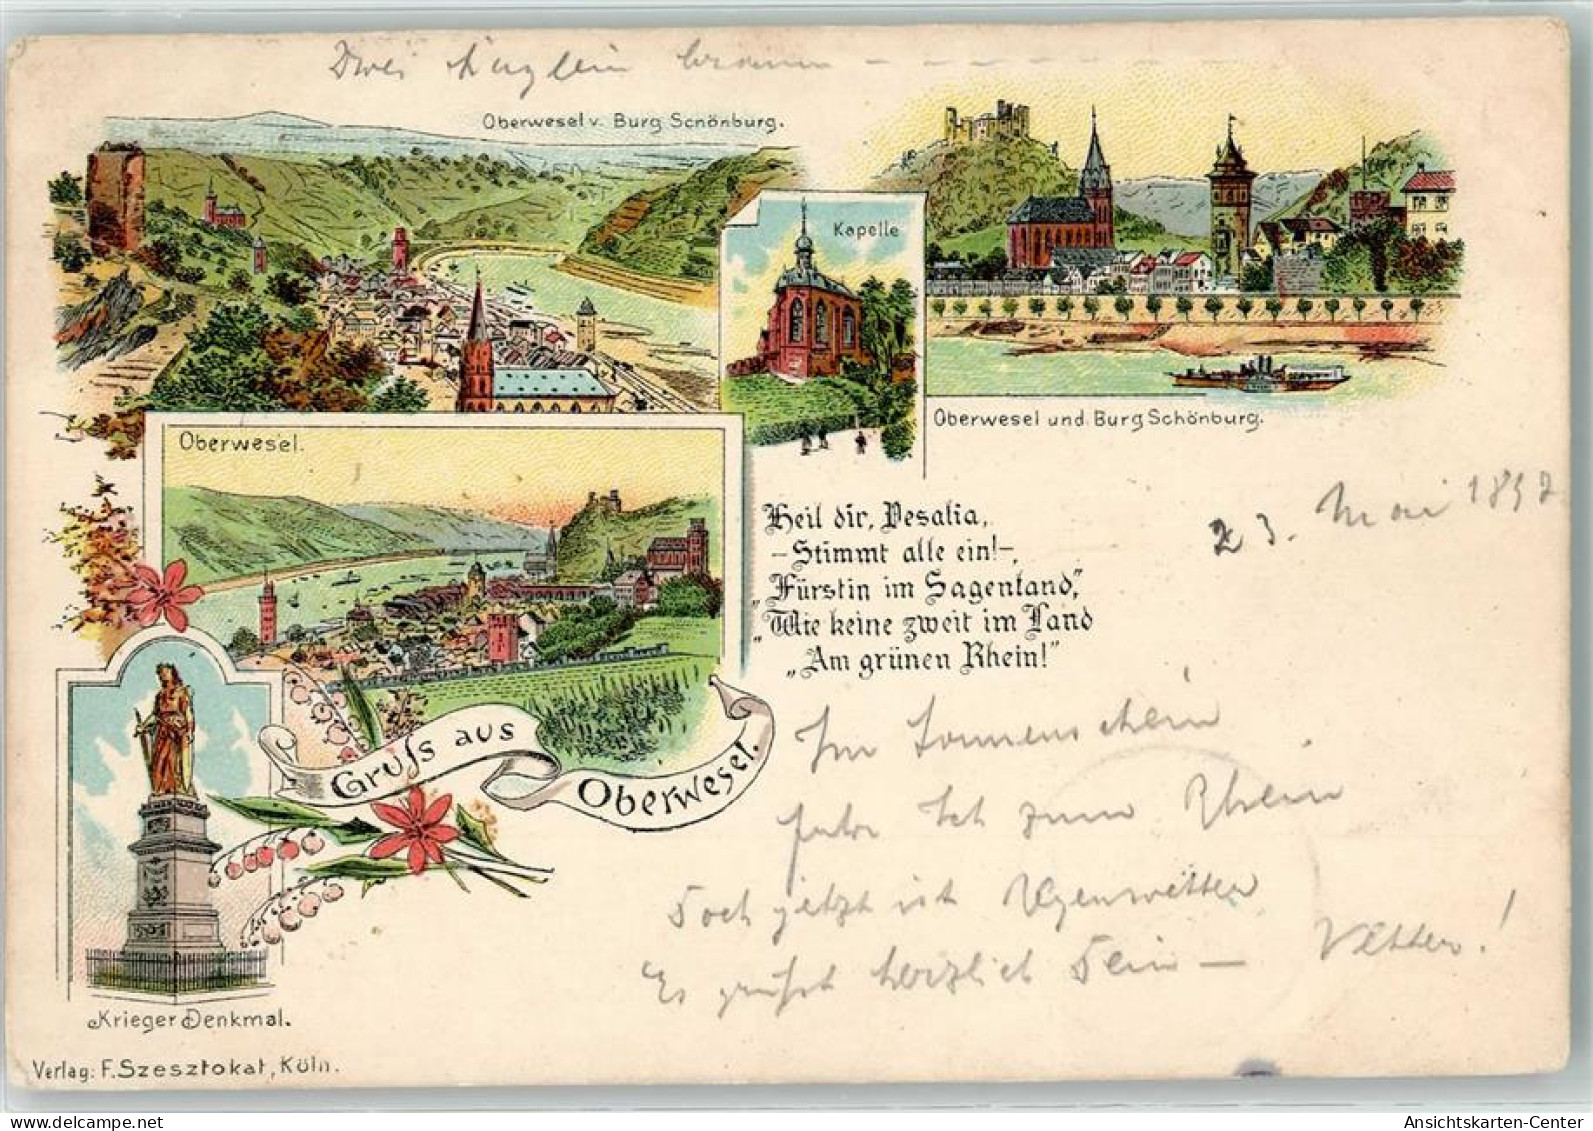 Zwei Äuglein braun - - - - - -
Oberwesel v. Burg Schönburg.
Kapelle
Oberwesel und Burg Schönburg.
Oberwesel.
23. Mai 1897
Heil dir, Vesalia,
-Stimmt alle ein!-,
"Fürstin im Sagenland,"
"Wie keine zweit im Land
"Am grünen Rhein!"
Im Sonnenschein
fuhr ich zum Rhein
Doch jetzt ist Regenwetter
Es grüßt herzlich Dein — Vetter!
Gruss aus
Oberwesel.
Krieger Denkmal.
Verlag: F. Szesztokat, Köln.
Ansichtskarten-Center